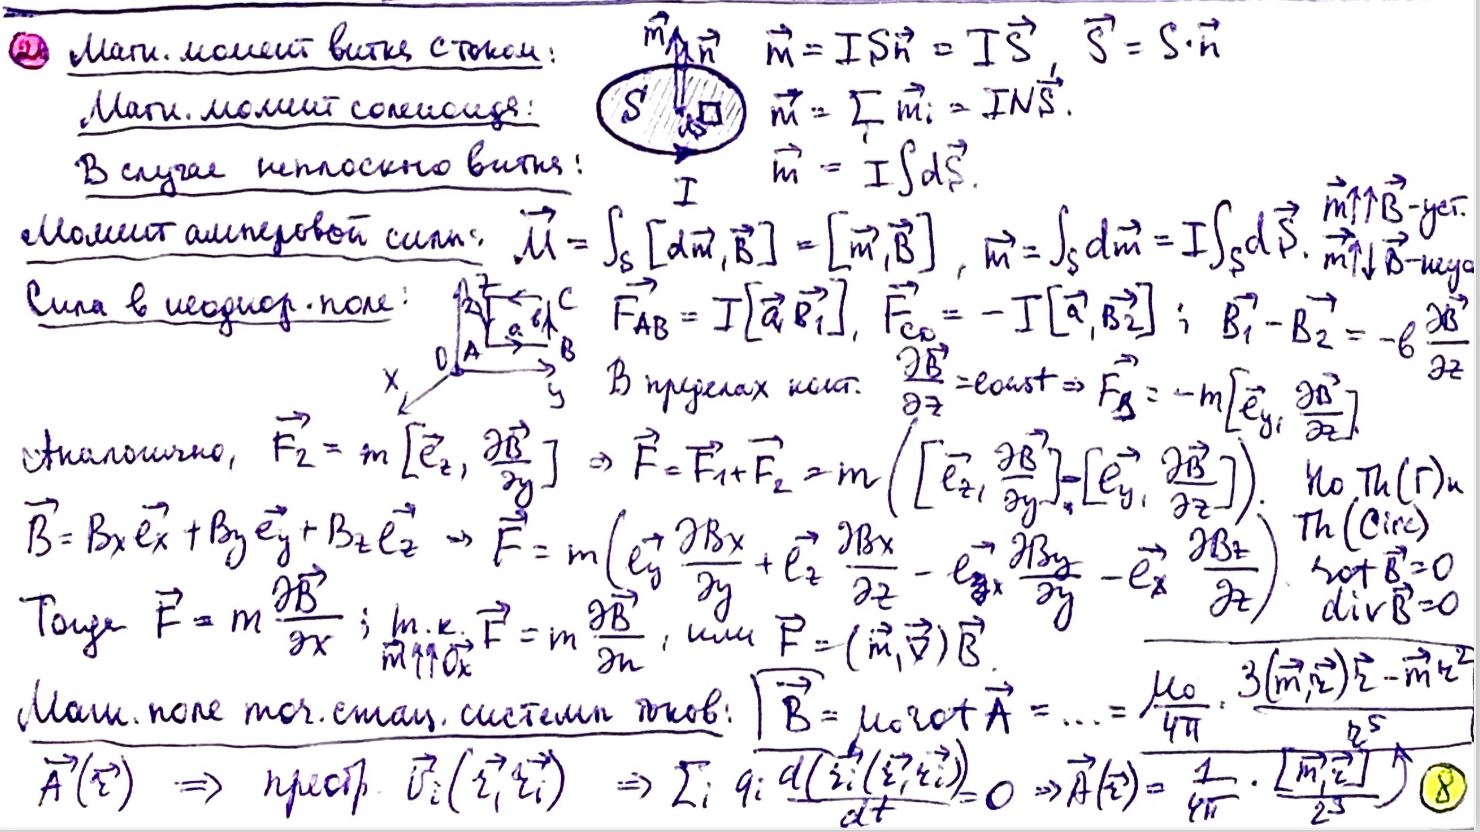 2 Магн. момент витка с током: m⃗ = ISn⃗ = IS⃗, S⃗ = S·n⃗
Магн. момент соленоида: m⃗ = Σᵢ m⃗ᵢ = INS⃗.
В случае неплоского витка: m⃗ = I∫dS⃗.
m⃗ n⃗ S dS I
Момент амперовой силы: M⃗ = ∫_S [dm⃗, B⃗] = [m⃗, B⃗], m⃗ = ∫_S dm⃗ = I∫_S dS⃗. m⃗↑↑B⃗ - уст.
m⃗↑↓B⃗ - неуст
Сила в неоднор. поле: F⃗_AB = I[a⃗, B⃗₁], F⃗_CD = -I[a⃗, B⃗₂]; B⃗₁ - B⃗₂ = -b ∂B⃗/∂z
Z C b a O A B X y
В пределах конт. ∂B⃗/∂z = const ⇒ F⃗ = -m[e⃗_y, ∂B⃗/∂z].
Аналогично, F⃗₂ = m[e⃗_z, ∂B⃗/∂y] ⇒ F⃗ = F⃗₁ + F⃗₂ = m([e⃗_z, ∂B⃗/∂y] - [e⃗_y, ∂B⃗/∂z]). Но Th(Г) и
Th(Circ)
B⃗ = Bₓe⃗ₓ + B_y e⃗_y + B_z e⃗_z ⇒ F⃗ = m(e⃗_y ∂Bₓ/∂y + e⃗_z ∂Bₓ/∂z - e⃗ₓ ∂B_y/∂y - e⃗ₓ ∂B_z/∂z). rot B⃗ = 0
div B⃗ = 0
Тогда F⃗ = m ∂B⃗/∂x; т.к. m⃗↑↑Oₓ F⃗ = m ∂B⃗/∂n, или F⃗ = (m⃗, ∇⃗)B⃗.
Магн. поле точ. стац. системы токов: B⃗ = μ₀ rot A⃗ = ... = μ₀/4π · (3(m⃗, r⃗)r⃗ - m⃗r²)/r⁵
A⃗(r⃗) ⇒ простр. v⃗ᵢ(r⃗, r⃗ᵢ) ⇒ Σᵢ qᵢ d(r⃗ᵢ(r⃗, r⃗ᵢ))/dt = 0 ⇒ A⃗(r⃗) = 1/4π · [m⃗, r⃗]/r³
8